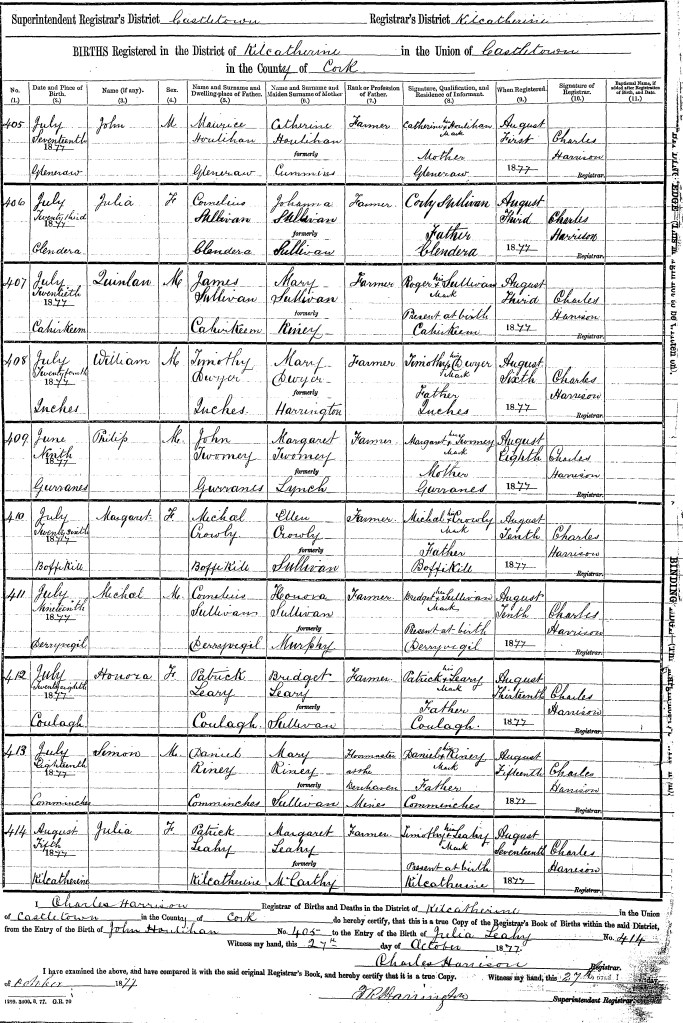 Superintendent Registrar's District Castletown Registrar's District Kilcatherine
BIRTHS Registered in the District of Kilcatherine in the Union of Castletown
in the County of Cork
No. Date and Place of Birth. Name (if any). Sex. Name and Surname and Dwelling-place of Father. Name and Surname and Maiden Surname of Mother Rank or Profession of Father. Signature, Qualification, and Residence of Informant. When Registered. Signature of Registrar. Baptismal Name, if added after Registration of Birth, and Date.
(1.) (2.) (3.) (4.) (5.) (6.) (7.) (8.) (9.) (10.) (11.)
405 July John M Maurice Catherine Farmer Catherine her Houlihan August
Seventeenth Houlihan Houlihan Mark First Charles
1877 formerly Mother Harrison
Gleneraw Gleneraw Cummins Gleneraw 1877 Registrar.
406 July Julia F Cornelius Johanna Farmer Corly Sullivan August
Twenty third Sullivan Sullivan Third Charles
1877 formerly Father Harrison
Clendera Clendera Sullivan Clendera 1877 Registrar.
407 July Quinlan M James Mary Farmer Roger his Sullivan August
Twentieth Sullivan Sullivan Mark Third Charles
1877 formerly Present at birth Harrison
Cahirkeem Cahirkeem Riney Cahirkeem 1877 Registrar.
408 July William M Timothy Mary Farmer Timothy his Dwyer August
Twenty fourth Dwyer Dwyer Mark Sixth Charles
1877 formerly Father Harrison
Inches Inches. Harrington Inches 1877 Registrar.
409 June Philip M. John Margaret Farmer Margaret her Twomey August
Ninth Twomey Twomey Mark Eighth Charles
1877 formerly Mother Harrison
Gurranes Gurranes Lynch Gurranes 1877 Registrar.
410 July Margaret F. Michal Ellen Farmer Michal his Crowly August
Twenty sixth Crowly Crowly Mark Tenth Charles
1877 formerly Father Harrison
Boffikill Boffikill Sullivan Boffikill 1877 Registrar.
411 July Michal M Cornelius Honora Farmer Bridget her Sullivan August
Nineteenth Sullivan Sullivan Mark Tenth Charles
1877 formerly Present at birth Harrison
Derryvegil Derryvegil Murphy Derryvegil 1877 Registrar.
412 July Honora F Patrick Bridget Farmer Patrick his Leary August
Twenty eighth Leary Leary Mark Thirteenth Charles
1877 formerly Father Harrison
Coulagh Coulagh Sullivan Coulagh. 1877 Registrar.
413 July Simon M. Daniel Mary Daniel his Riney August
Eighteenth Riney Riney Mark Fifteenth Charles
1877 formerly Berehaven Father Harrison
Comminches Comminches Sullivan Mines Comminches 1877 Registrar.
414 August Julia F Patrick Margaret Farmer Timothy his Leahy August
Fifth Leahy Leahy Mark Seventeenth Charles
1877 formerly Present at birth Harrison
Kilcatherine Kilcatherine McCarthy Kilcatherine 1877 Registrar.
I Charles Harrison Registrar of Births and Deaths in the District of Kilcatherine in the Union
of Castletown in the County of Cork do hereby certify, that this is a true Copy of the Registrar's Book of Births within the said District,
from the Entry of the Birth of John Houlihan No. 405 to the Entry of the Birth of Julia Leahy No. 414
Witness my hand, this 27th day of October 1877.
Charles Harrison Registrar.
I have examined the above, and have compared it with the said original Registrar's Book, and hereby certify that it is a true Copy. Witness my hand, this 27th day
of October 1877
Superintendent Registrar.